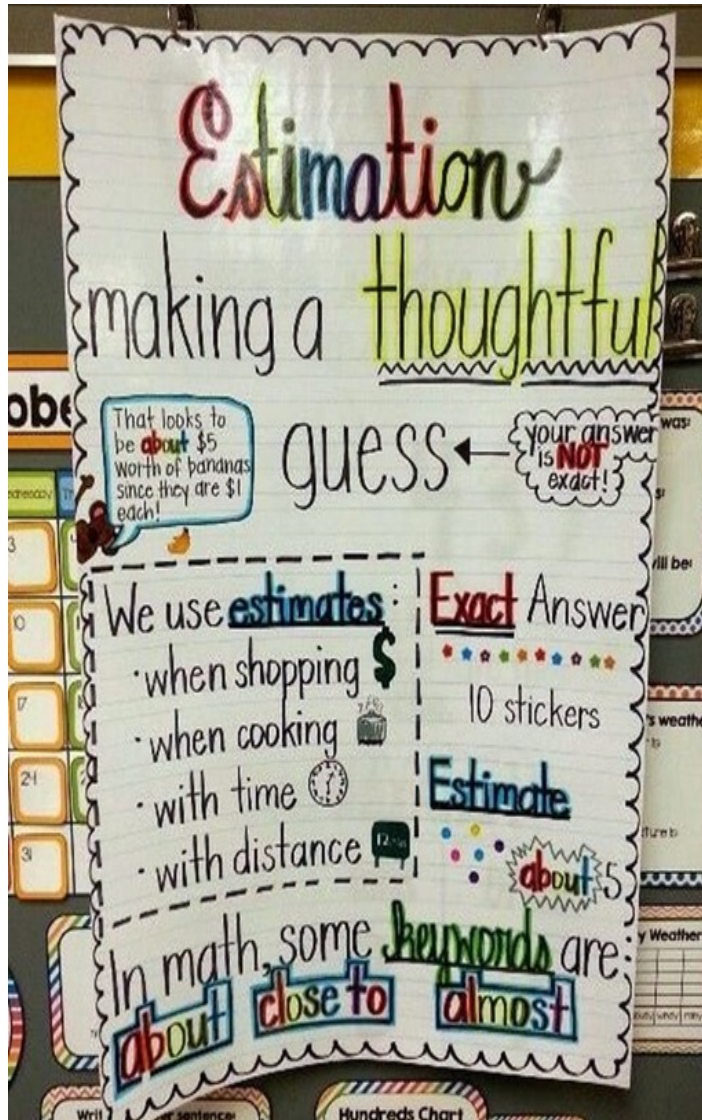 Estimation
making a thoughtful
guess
That looks to
be about $5
worth of bananas
since they are $1
each!
your answer
is NOT
exact!
We use estimates:
• when shopping $
• when cooking
• with time
• with distance
Exact Answer
10 stickers
Estimate
about 5
In math, some keywords are:
about close to almost
obe
3
10
17
24
31
was:
will be:
's weathe
y Weather
Writ
r sentence:
Hundreds Chart